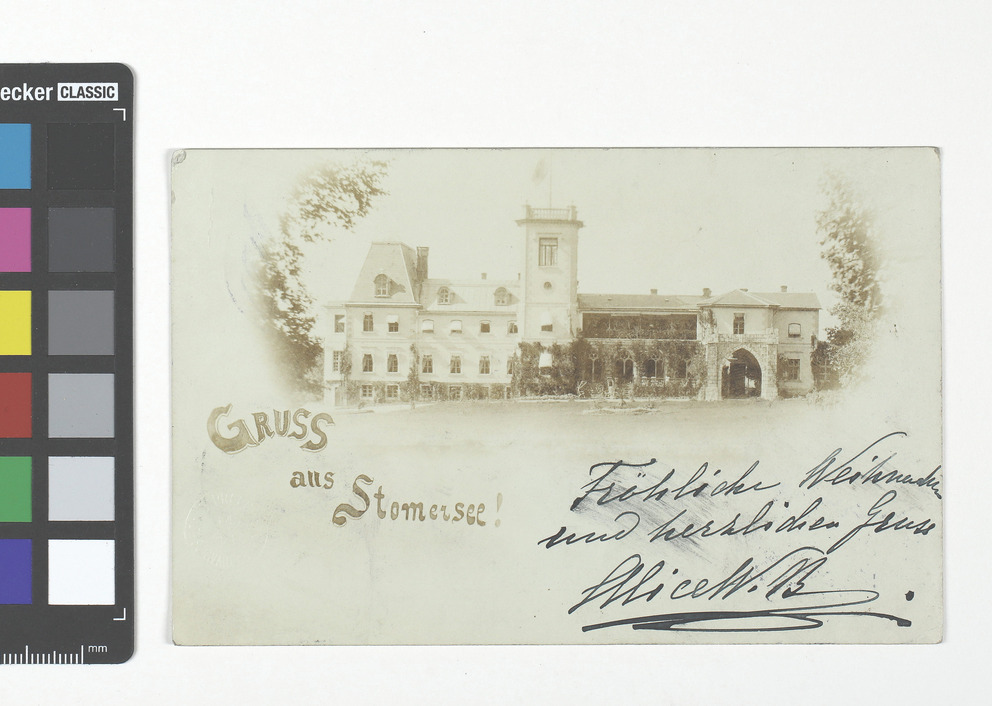 ecker CLASSIC
GRUSS
aus
Stomersee!
Fröhliche Weihnachten
und herzlichen Gruss
Alice W. B.
mm